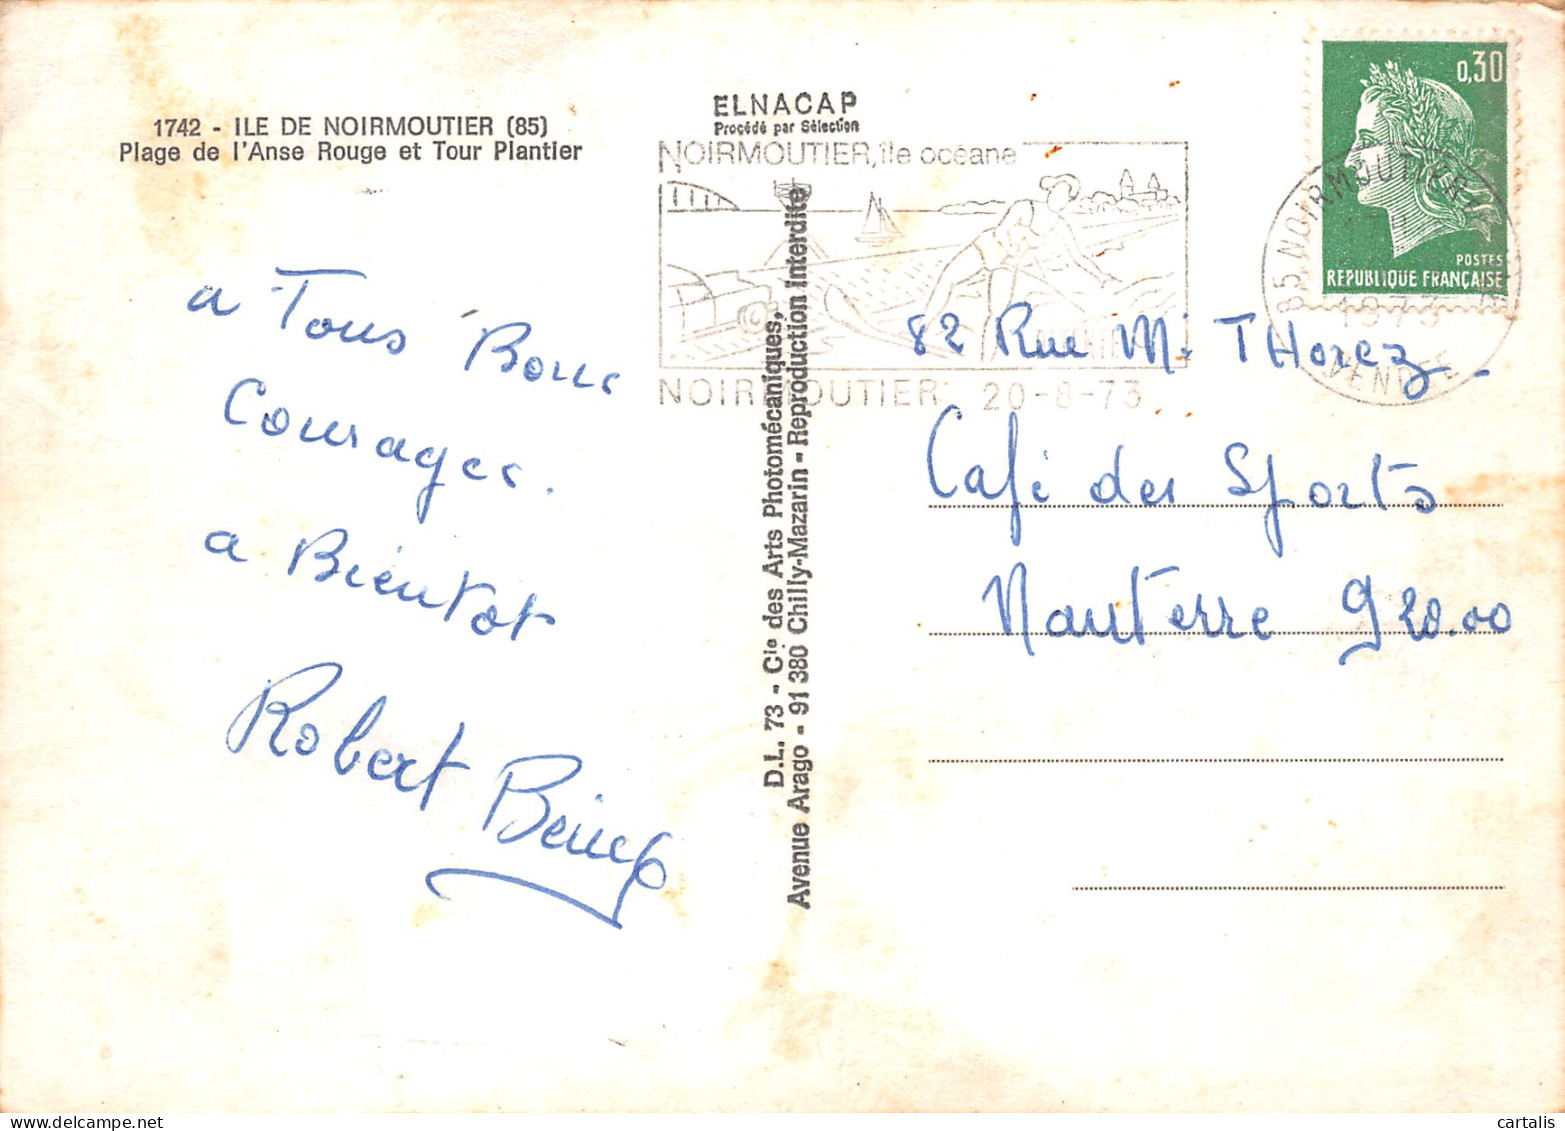 1742 - ILE DE NOIRMOUTIER (85)
Plage de l'Anse Rouge et Tour Plantier
a Tous Bons
Courages.
a Bientot
Robert
ELNACAP
Procédé par Sélection
NOIRMOUTIER, île océane
NOIRMOUTIER 20-8-73
D.L. 73 - Cie des Arts Photomécaniques,
Avenue Arago - 91 380 Chilly-Mazarin - Reproduction Interdite
0,30
POSTES
REPUBLIQUE FRANÇAISE
85 NOIRMOUTIER
1973
VENDEE
82 Rue M. THorez
Café des Sports
Nanterre 920.00
cartalis